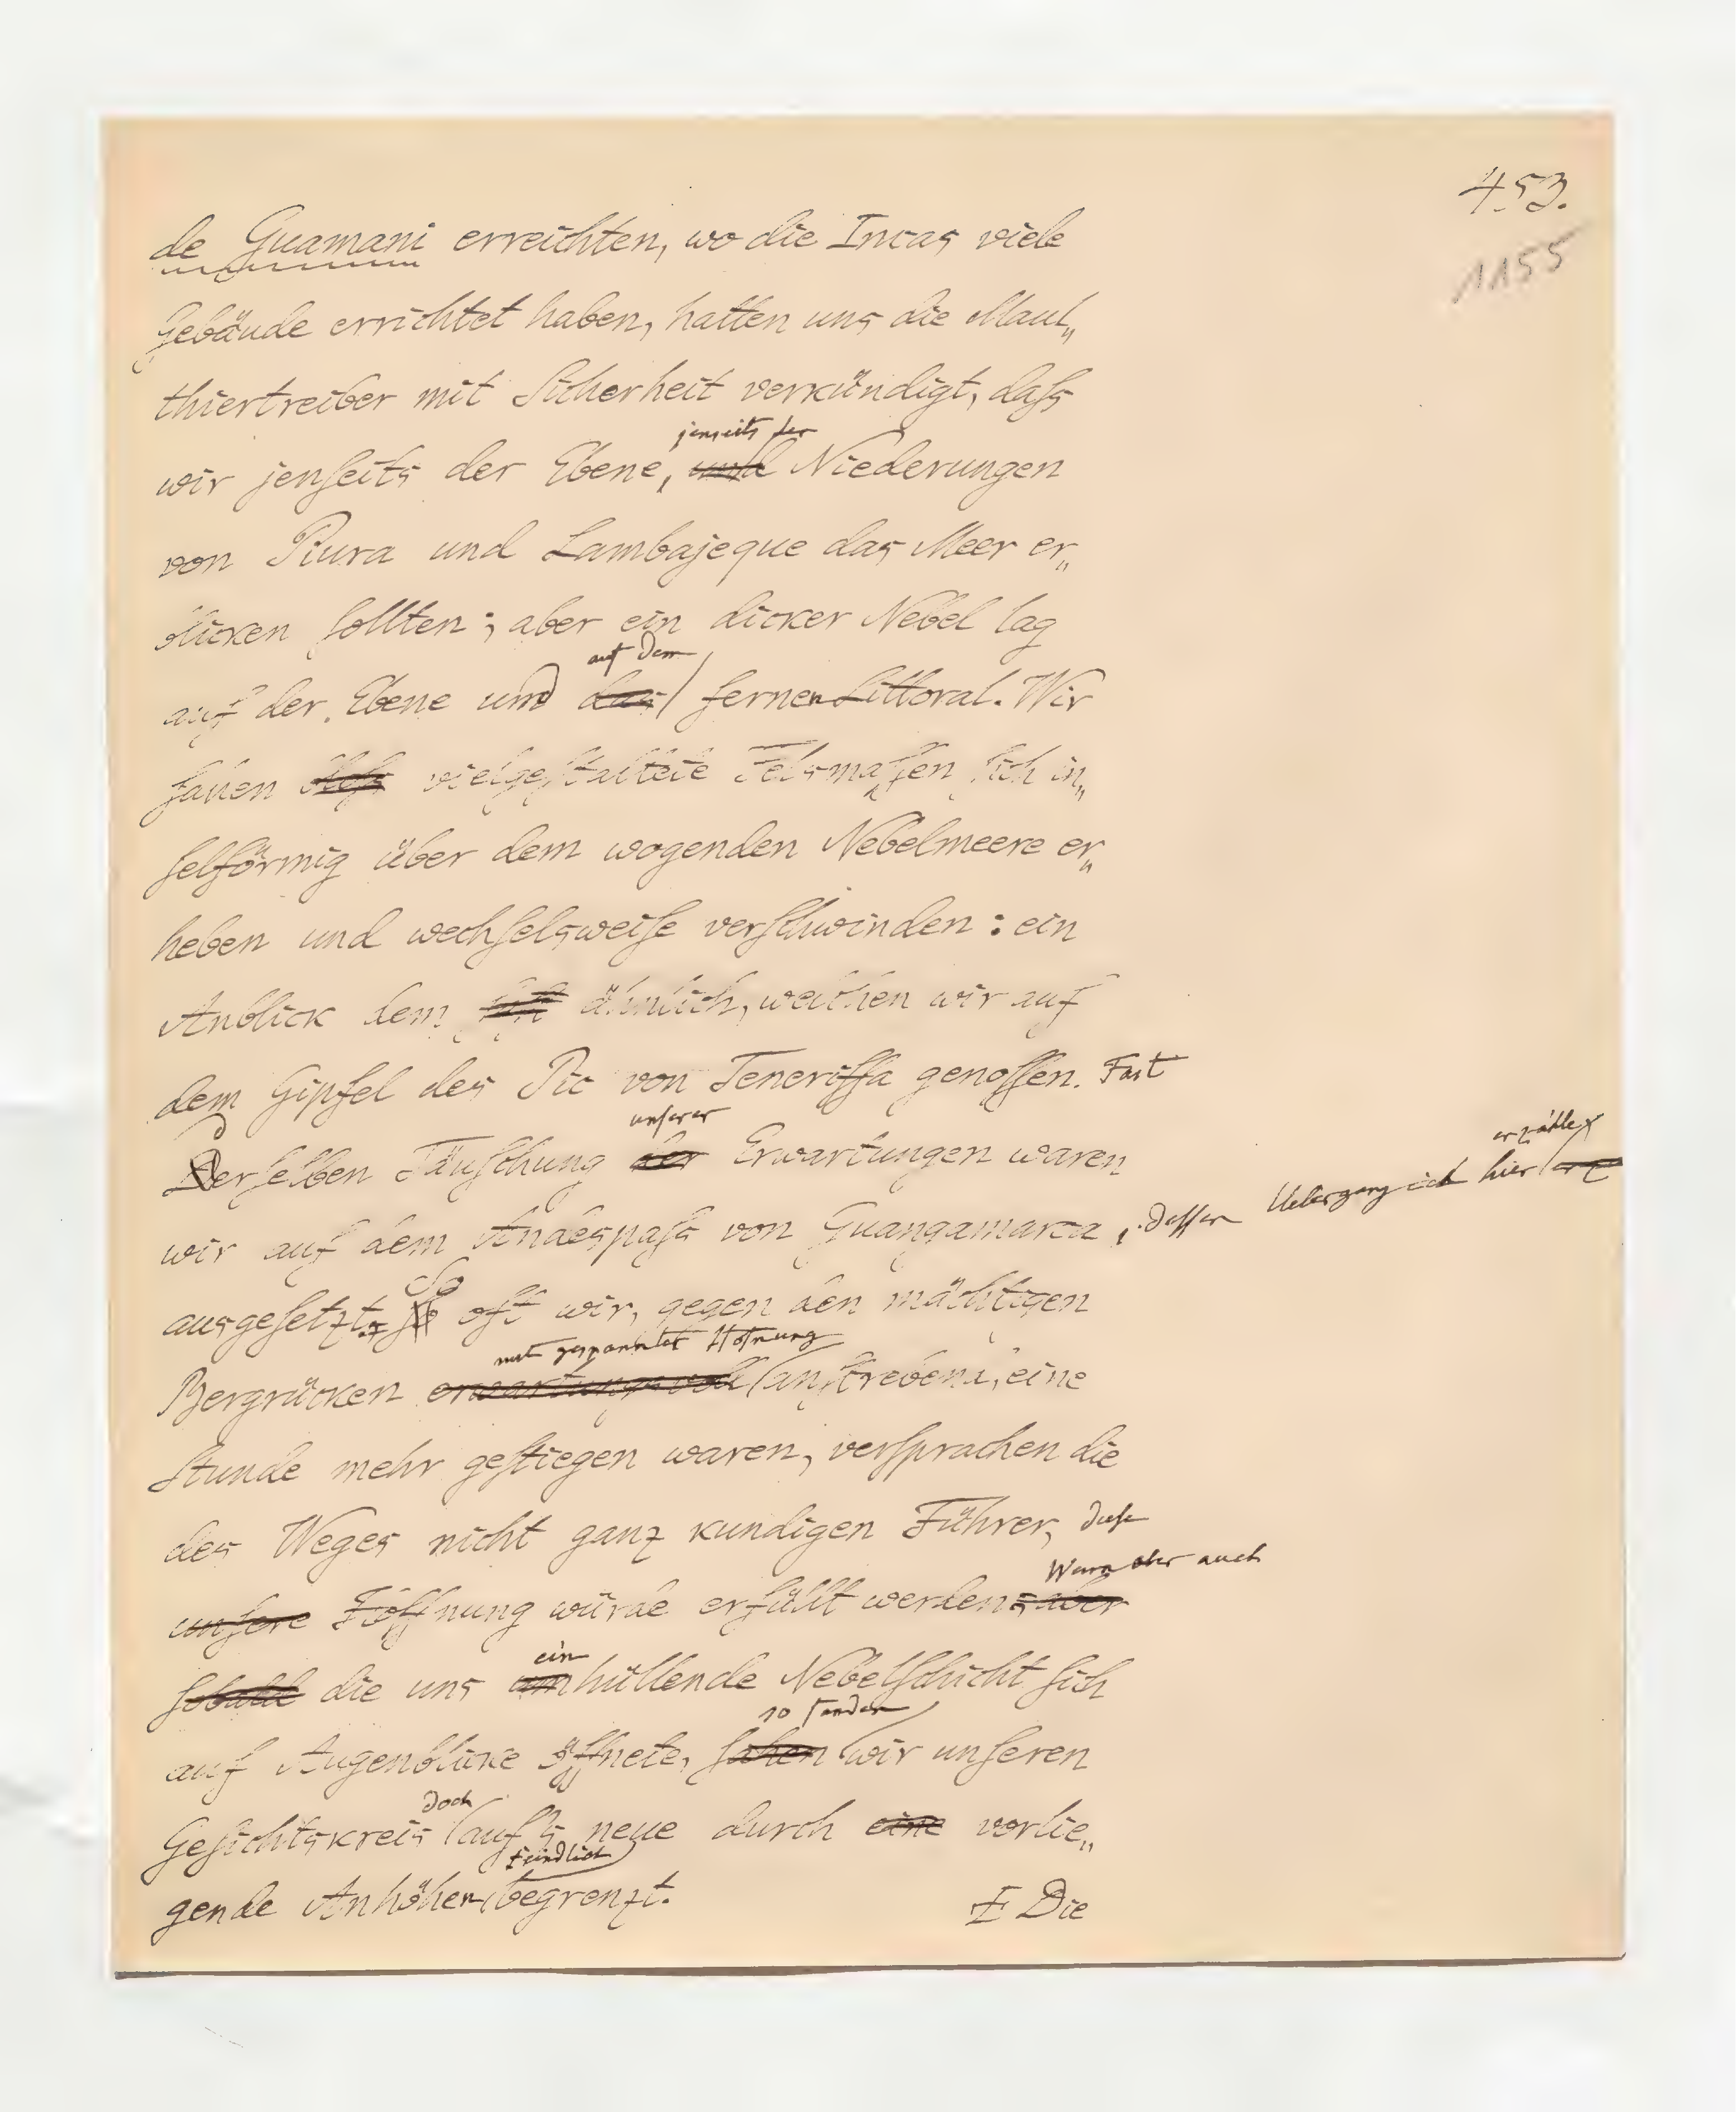 453.
1155
de Guamani erreichten, wo die Incas viele
Gebäude errichtet haben, hatten uns die Maul„
thiertreiber mit Sicherheit verkündigt, daſs
jenseits der
wir jenſeits der Ebene, und Niederungen
von Piura und Lambajeque das Meer er„
blicken ſollten; aber ein dicker Nebel lag
auf dem
auf der Ebene und das fernen Littoral. Wir
ſahen vielgeſtaltete Felsmaſſen ſich in„
ſelförmig über dem wogenden Nebelmeere er„
heben und wechſelsweiſe verſchwinden: ein
Anblick dem ähnlich, welchen wir auf
dem Gipfel des Pic von Teneriffa genoſſen. Fast
unserer
Derſelben Täuſchung der Erwartungen waren
erzähle
wir auf dem Andespaſs von Guangamarca, dessen Uebergang ich hier erz
So
ausgeſetzt. oft wir, gegen den mächtigen
mit gespannter Hofnung
Bergrücken erwartungsvoll anſtrebend, eine
Stunde mehr geſtiegen waren, verſprachen die
des Weges nicht ganz kundigen Führer, diese
Wenn aber auch
unſere Hoffnung würde erfüllt werden; aber
ein
ſobald die uns umhüllende Nebelſchicht ſich
so fanden
auf Augenblicke öffnete, ſahen wir unſeren
doch
Geſichtskreis auf's neue durch eine vorlie„
feindlich
gende Anhöhen begrenzt.
Die